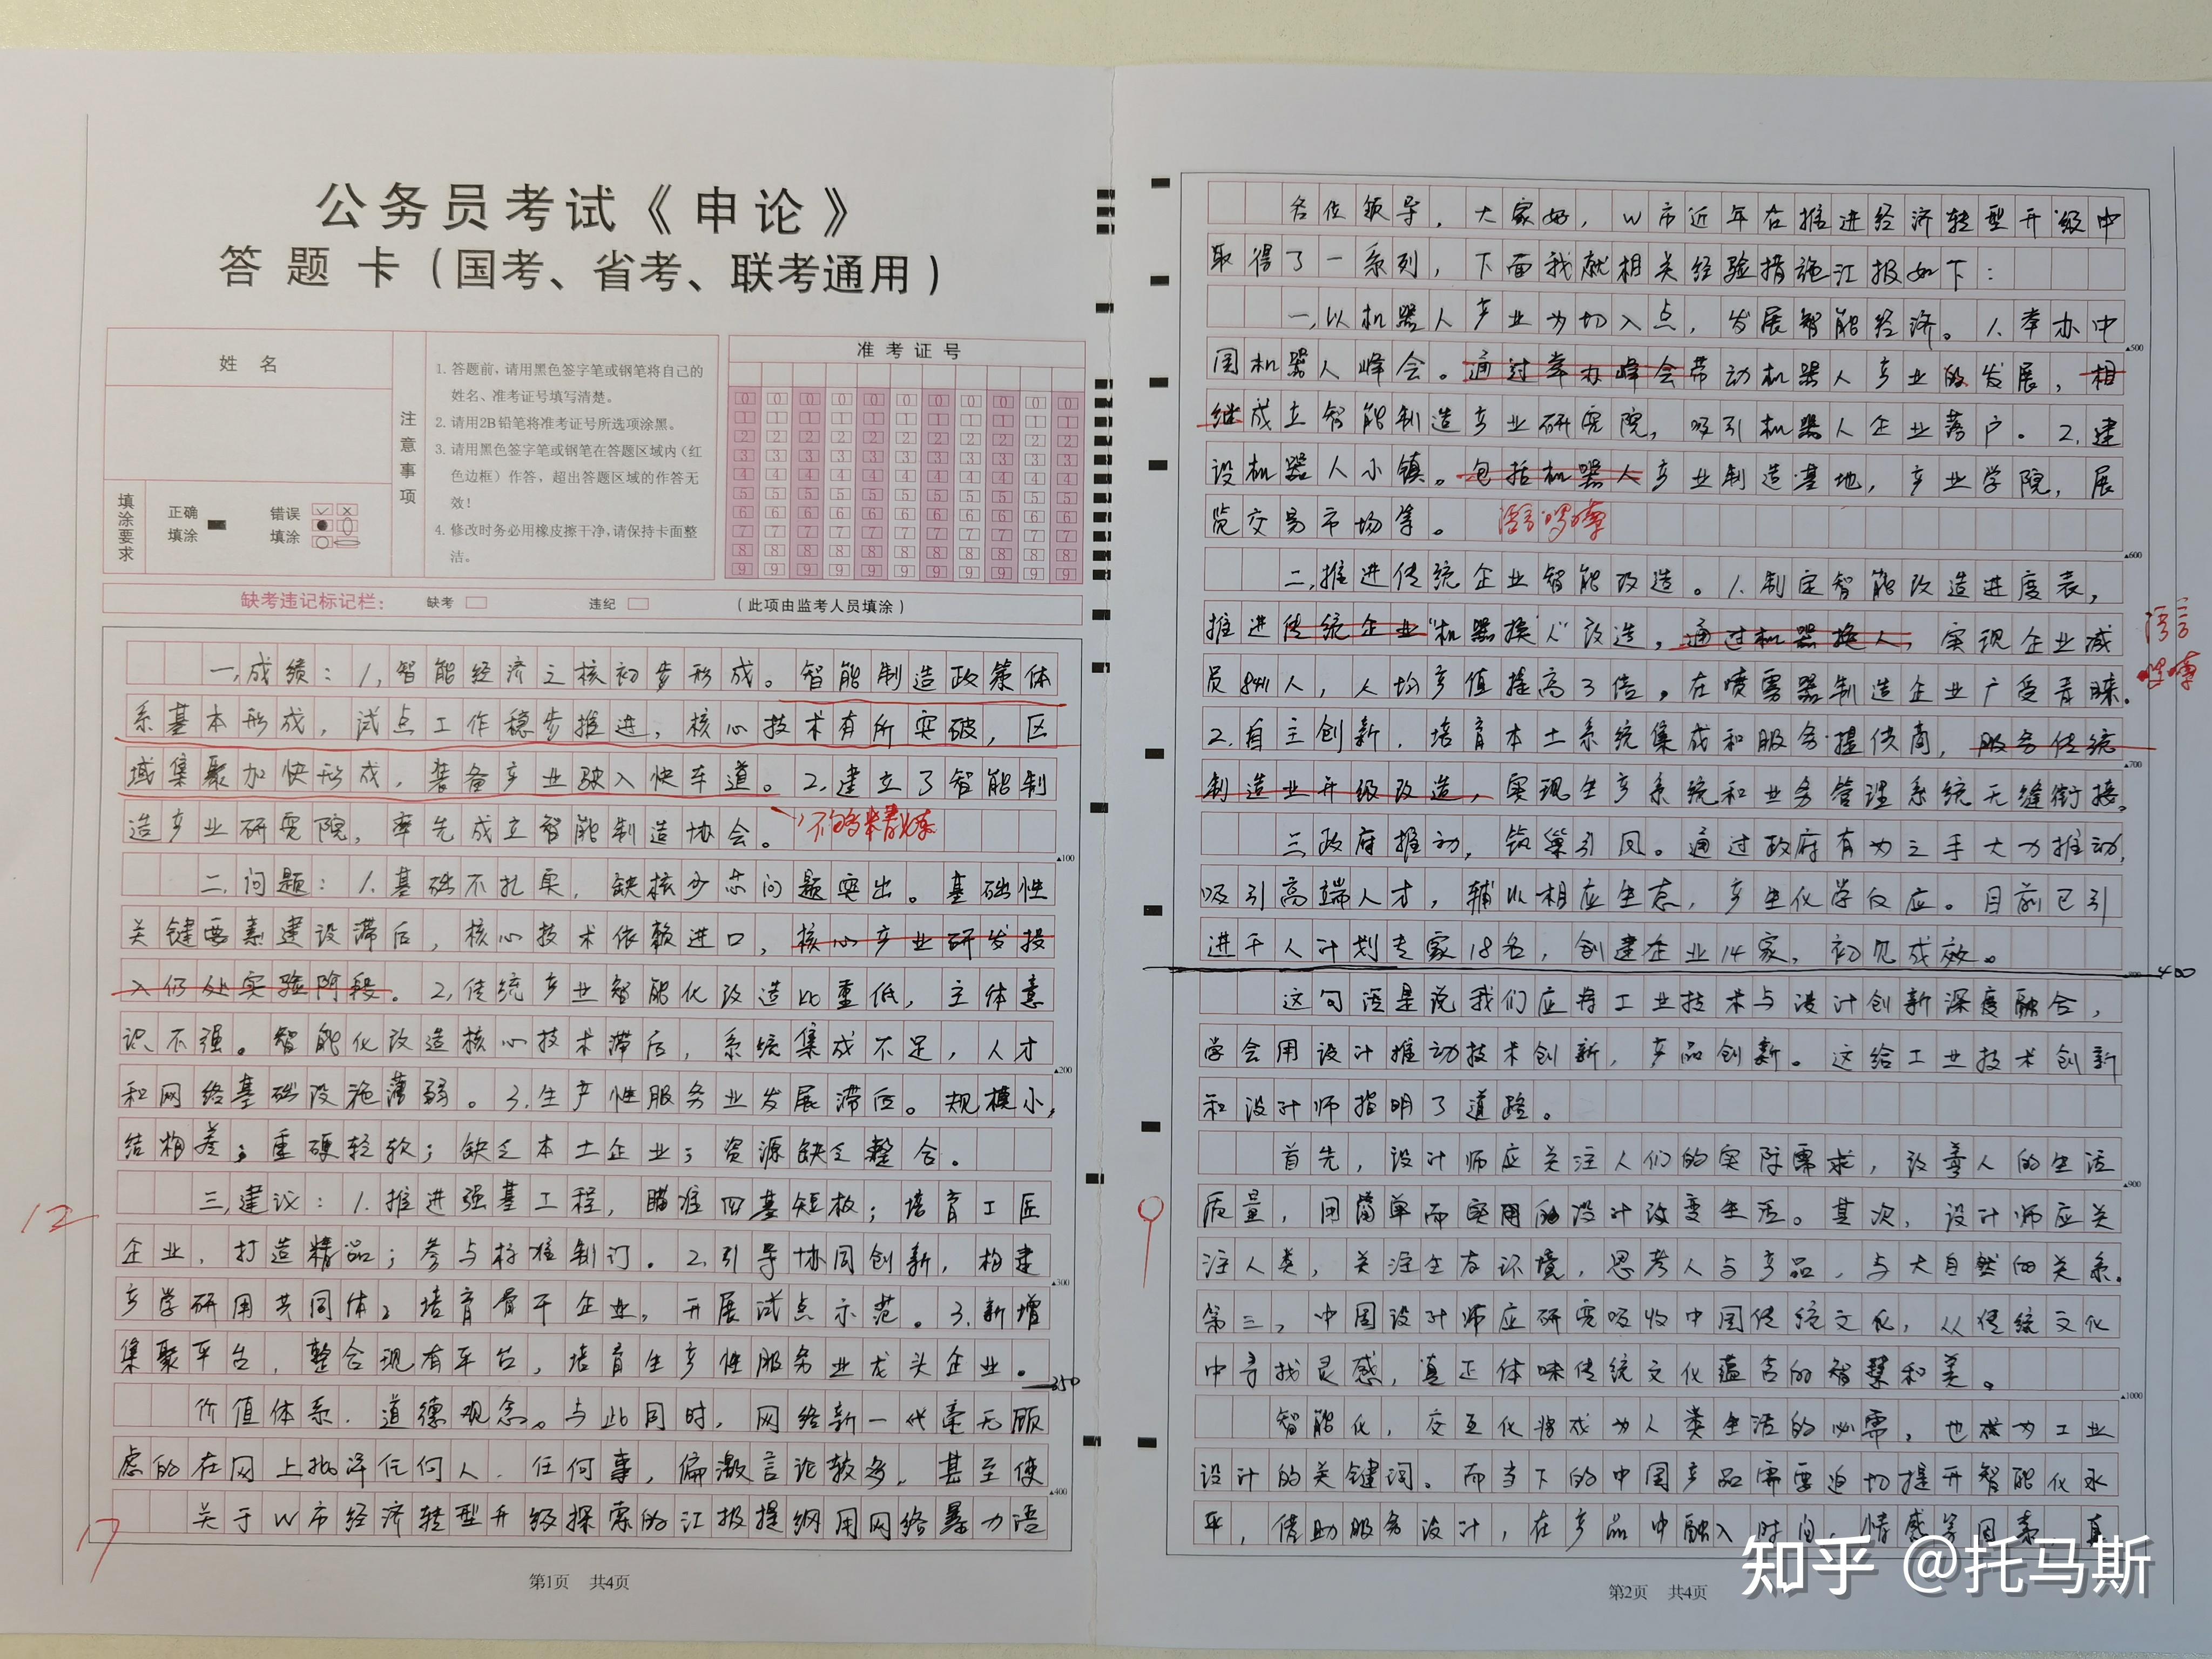 公务员考试《申论》
答题卡（国考、省考、联考通用）
姓名
准考证号
注意事项
1. 答题前，请用黑色签字笔或钢笔将自己的
姓名、准考证号填写清楚。
2. 请用2B铅笔将准考证号所选项涂黑。
3. 请用黑色签字笔或钢笔在答题区域内（红
色边框）作答，超出答题区域的作答无
效！
4. 修改时务必用橡皮擦干净，请保持卡面整
洁。
填涂要求
正确填涂
错误填涂
缺考违记标记栏：
缺考
违纪
（此项由监考人员填涂）
一、成绩：1、智能经济之核初步形成。智能制造政策体
系基本形成，试点工作稳步推进，核心技术有所突破，区
域集聚加快形成，装备产业驶入快车道。2、建立了智能制
造产业研究院，率先成立智能制造协会。
不够精炼
▲100
二、问题：1、基础不扎实，缺核少芯问题突出。基础性
关键要素建设滞后，核心技术依赖进口，核心产业研发投
入仍处实验阶段。2、传统产业智能化改造比重低，主体意
识不强。智能化改造核心技术滞后，系统集成不足，人才
和网络基础设施薄弱。3、生产性服务业发展滞后。规模小，
▲200
结构差；重硬轻软；缺乏本土企业；资源缺乏整合。
三、建议：1、推进强基工程，瞄准四基短板；培育工匠
12
企业，打造精品；参与标准制订。2、引导协同创新，构建
产学研用共同体，培育骨干企业，开展试点示范。3、新增
▲300
集聚平台，整合现有平台，培育生产性服务业龙头企业。
350
价值体系、道德观念。与此同时，网络新一代毫无顾
虑的在网上批评任何人、任何事，偏激言论较多，甚至使
▲400
关于W市经济转型升级探索的汇报提纲用网络暴力语
17
第1页 共4页
各位领导，大家好，W市近年在推进经济转型升级中
取得了一系列，下面我就相关经验措施汇报如下：
一、以机器人产业为切入点，发展智能经济。1、举办中
▲500
国机器人峰会。通过举办峰会带动机器人产业的发展，相
继成立智能制造产业研究院，吸引机器人企业落户。2、建
设机器人小镇。包括机器人产业制造基地，产业学院，展
览交易市场等。
语言啰嗦
▲600
二、推进传统企业智能改造。1、制定智能改造进度表，
推进传统企业“机器换人”改造，通过机器换人，实现企业减
语言啰嗦
员841人，人均产值提高3倍。在喷雾器制造企业广受青睐。
2、自主创新，培育本土系统集成和服务提供商，服务传统
▲700
制造业升级改造，实现生产系统和业务管理系统无缝衔接。
三、政府推动，筑巢引凤。通过政府有为之手大力推动，
吸引高端人才，辅以相应生态，产生化学反应。目前已引
进千人计划专家18名，创建企业14家，初见成效。
400
这句话是说我们应将工业技术与设计创新深度融合，
学会用设计推动技术创新，产品创新。这给工业技术创新
和设计师指明了道路。
首先，设计师应关注人们的实际需求，改善人的生活
▲900
质量，用简单而实用的设计改变生活。其次，设计师应关
9
注人类，关注生存环境，思考人与产品，与大自然的关系。
第三，中国设计师应研究吸收中国传统文化，从传统文化
中寻找灵感，真正体味传统文化蕴含的智慧和美。
▲1000
智能化，交互化将成为人类生活的必需，也成为工业
设计的关键词。而当下的中国产品需要迫切提升智能化水
平，借助服务设计，在产品中融入时间、情感等因素，真
第2页 共4页
知乎 @托马斯